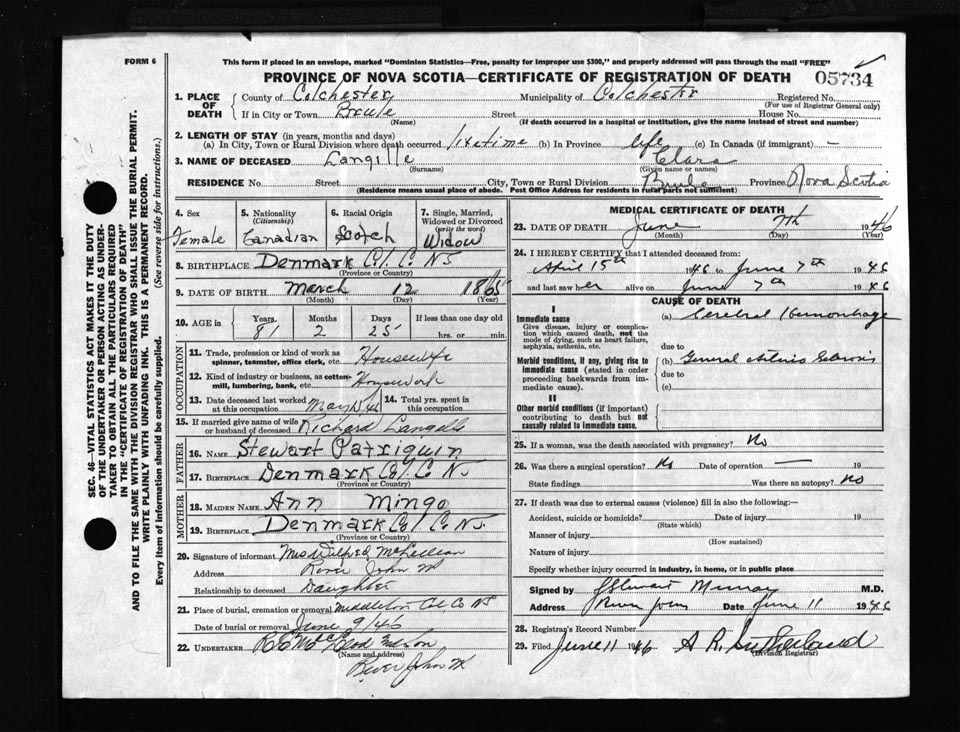 FORM 6
This form if placed in an envelope, marked "Dominion Statistics—Free, penalty for improper use $300," and properly addressed will pass through the mail "FREE"
PROVINCE OF NOVA SCOTIA—CERTIFICATE OF REGISTRATION OF DEATH
05734
SEC. 46—VITAL STATISTICS ACT MAKES IT THE DUTY
OF THE UNDERTAKER OR PERSON ACTING AS UNDER-
TAKER TO OBTAIN ALL THE PARTICULARS REQUIRED
IN THE "CERTIFICATE OF REGISTRATION OF DEATH"
AND TO FILE THE SAME WITH THE DIVISION REGISTRAR WHO SHALL ISSUE THE BURIAL PERMIT.
WRITE PLAINLY WITH UNFADING INK. THIS IS A PERMANENT RECORD.
Every item of information should be carefully supplied. (See reverse side for instructions.)
1. PLACE OF DEATH
County of Colchester Municipality of Colchester Registered No.
(For use of Registrar General only)
If in City or Town Brule Street House No.
(Name) (If death occurred in a hospital or institution, give the name instead of street and number)
2. LENGTH OF STAY (in years, months and days)
(a) In City, Town or Rural Division where death occurred lifetime (b) In Province life (c) In Canada (if immigrant) —
3. NAME OF DECEASED Langille Clara
(Surname) (Given name or names)
RESIDENCE No. Street City, Town or Rural Division Brule Province Nova Scotia
(Residence means usual place of abode. Post Office Address for residents in rural parts not sufficient)
4. Sex Female
5. Nationality (Citizenship) Canadian
6. Racial Origin Scotch
7. Single, Married, Widowed or Divorced (write the word) Widow
8. BIRTHPLACE Denmark Col. Co NS
(Province or Country)
9. DATE OF BIRTH March 12 1865
(Month) (Day) (Year)
10. AGE in Years 81 Months 2 Days 25 If less than one day old hrs. or min.
OCCUPATION
11. Trade, profession or kind of work as spinner, teamster, office clerk, etc. Housewife
12. Kind of industry or business, as cotton-mill, lumbering, bank, etc. Housework
13. Date deceased last worked at this occupation May 15/46
14. Total yrs. spent in this occupation
15. If married give name of wife or husband of deceased Richard Langille
FATHER
16. Name Stewart Patriquin
17. Birthplace Denmark Col. Co N.
(Province or Country)
MOTHER
18. Maiden Name Ann Mingo
19. Birthplace Denmark Col. Co NS.
(Province or Country)
20. Signature of informant Mrs Wilfred McLellan
Address River John
Relationship to deceased Daughter
21. Place of burial, cremation or removal Middleton Col Co NS
Date of burial or removal June 9/46
22. UNDERTAKER
(Name and address)
River John
MEDICAL CERTIFICATE OF DEATH
23. DATE OF DEATH June 7th 1946
(Month) (Day) (Year)
24. I HEREBY CERTIFY that I attended deceased from:
April 15th 1946 to June 7th 1946
and last saw her alive on June 7th 1946
CAUSE OF DEATH
I
Immediate cause
Give disease, injury or complication which caused death, not the mode of dying, such as heart failure, asphyxia, asthenia, etc.
(a) Cerebral Hemorrhage
due to
Morbid conditions, if any, giving rise to immediate cause (stated in order proceeding backwards from immediate cause).
(b) General Arterio Sclerosis
due to
(c)
II
Other morbid conditions (if important) contributing to death but not causally related to immediate cause.
25. If a woman, was the death associated with pregnancy? No
26. Was there a surgical operation? No Date of operation — 19
State findings Was there an autopsy? No
27. If death was due to external causes (violence) fill in also the following:—
Accident, suicide or homicide? Date of injury 19
(State which)
Manner of injury
(How sustained)
Nature of injury
Specify whether injury occurred in industry, in home, or in public place
Signed by J Stewart Murray M.D.
Address River John Date June 11 1946
28. Registrar's Record Number
29. Filed June 11 1946 A R. Sutherland
(Division Registrar)